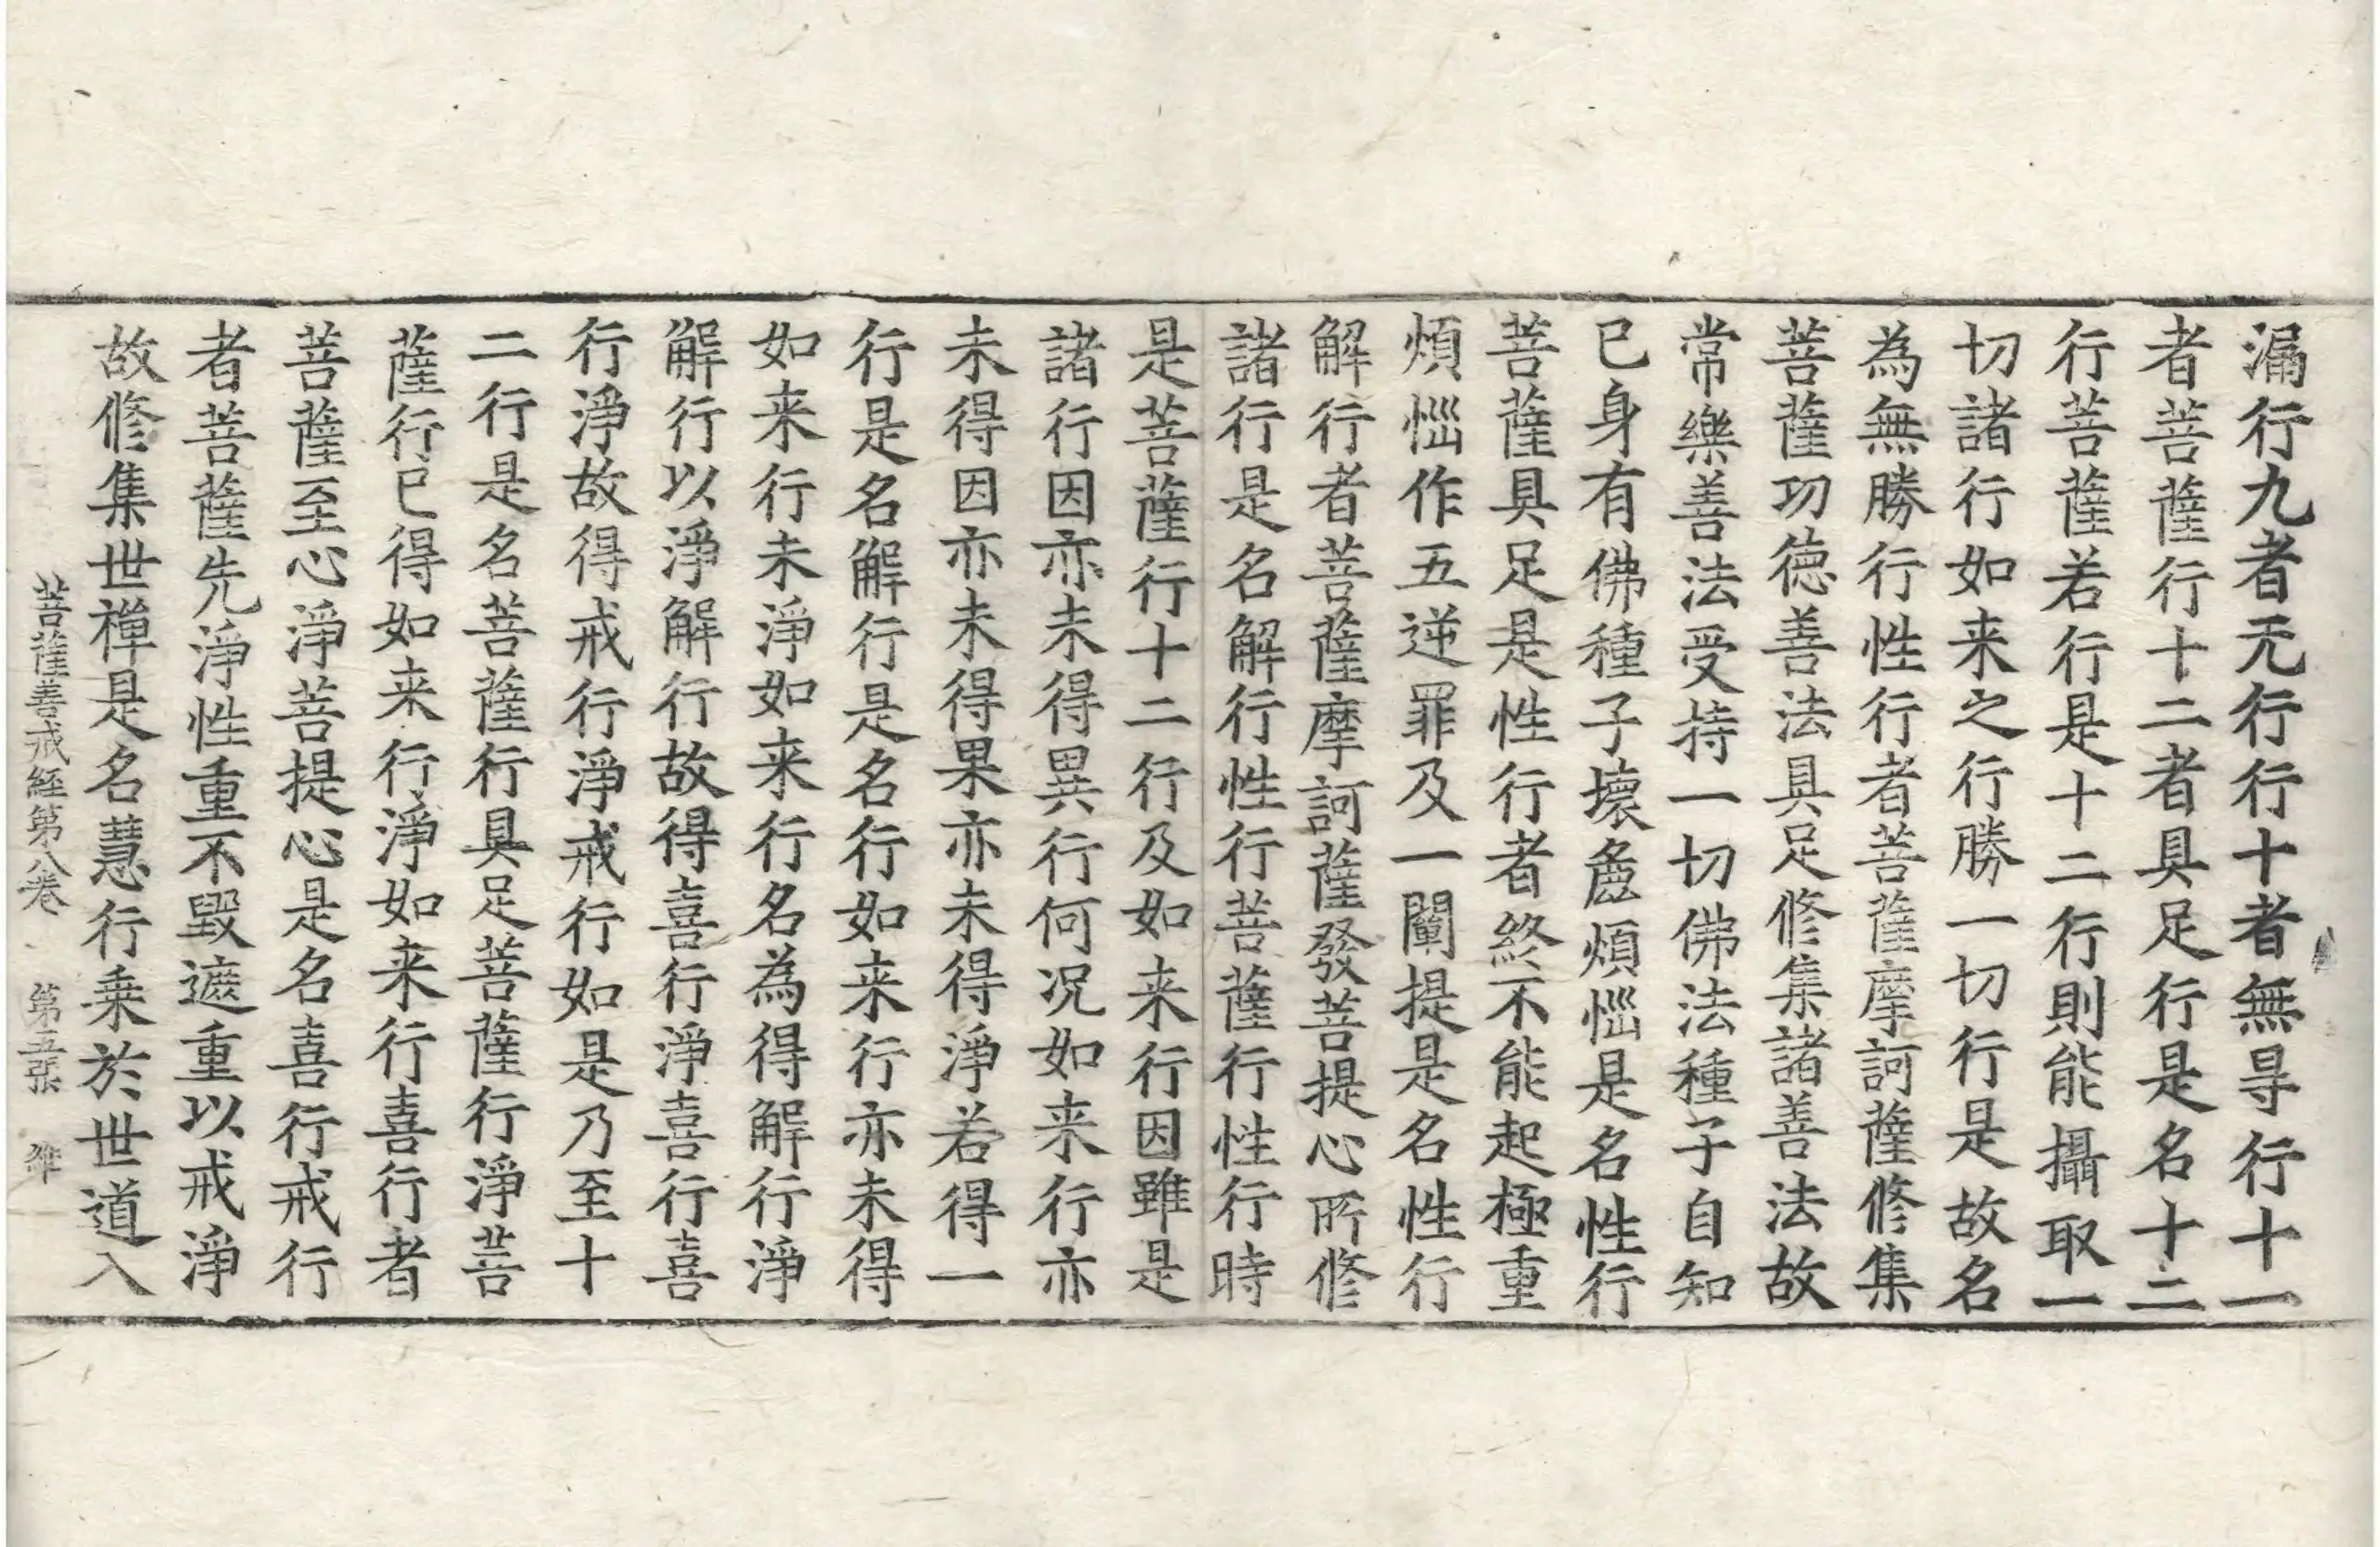 漏行九者无行行十者無㝵行十一
者菩薩行十二者具足行是名十二
行菩薩若行是十二行則能攝取一
切諸行如来之行勝一切行是故名
為無勝行性行者菩薩摩訶薩修集
菩薩功德善法具足修集諸善法故
常樂善法受持一切佛法種子自知
已身有佛種子壞麁煩惱是名性行
菩薩具足是性行者終不能起極重
煩惱作五逆罪及一闡提是名性行
解行者菩薩摩訶薩發菩提心所修
諸行是名解行性行菩薩行性行時
是菩薩行十二行及如来行因雖是
諸行因亦未得異行何况如来行亦
未得因亦未得果亦未得淨若得一
行是名解行是名行如来行亦未得
如来行未淨如来行名為得解行淨
解行以淨解行故得喜行淨喜行喜
行淨故得戒行淨戒行如是乃至十
二行是名菩薩行具足菩薩行淨菩
薩行已得如来行淨如来行喜行者
菩薩至心淨菩提心是名喜行戒行
者菩薩先淨性重不毀遮重以戒淨
故修集世禪是名慧行乗於世道入
菩薩善戒経第八卷 第五張 維